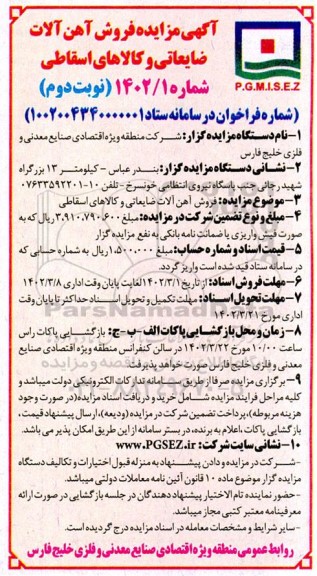 آگهی مزایده فروش آهن آلات
ضایعاتی و کالاهای اسقاطی
شماره ۱۴۰۲/۱ (نوبت دوم)
P.G.M.I.S.E.Z
(شماره فراخوان در سامانه ستاد ۱۰۰۲۰۰۴۳۴۰۰۰۰۰۰۱)
۱-نام دستگاه مزایده گزار: شرکت منطقه ویژه اقتصادی صنایع معدنی و
فلزی خلیج فارس
۲- نشانی دستگاه مزایده گزار: بندر عباس - کیلومتر ۱۳ بزرگراه
شهید رجائی جنب پاسگاه نیروی انتظامی خونسرخ - تلفن ۱۰-۰۷۶۳۳۵۹۲۲۰۱
۳-موضوع مزایده: فروش آهن آلات ضایعاتی و کالاهای اسقاطی
۴-مبلغ و نوع تضمین شرکت در مزایده: مبلغ ۳،۹۱۰،۷۹۰،۶۰۰ ریال که به
صورت فیش واریزی یا ضمانت نامه بانکی به نفع مزایده گزار
۵- قیمت اسناد و شماره حساب: مبلغ ۱،۵۰۰،۰۰۰ ریال به شماره حسابی که
در سامانه ستاد قید شده است واریز گردد.
۶-مهلت فروش اسناد: از تاریخ ۱۴۰۲/۳/۱ لغایت پایان وقت اداری ۱۴۰۲/۳/۸
۷-مهلت تحویل اسناد: مهلت تکمیل و تحویل اسناد حداکثر تا پایان وقت
اداری مورخ ۱۴۰۲/۳/۲۱
۸- زمان و محل بازگشایی پاکات الف - ب - ج: بازگشایی پاکات راس
ساعت ۱۰/۰۰ مورخ ۱۴۰۲/۳/۲۲ در سالن کنفرانس منطقه ویژه اقتصادی صنایع
معدنی و فلزی خلیج فارس صورت خواهد پذیرفت
۹- برگزاری مزایده صرفا از طریق سامانه تدارکات الکترونیکی دولت میباشد و
کلیه مراحل فرایند مزایده شامل خرید و دریافت اسناد مزایده (در صورت وجود
هزینه مربوطه)، پرداخت تضمین شرکت در مزایده (ودیعه)، ارسال پیشنهاد قیمت،
بازگشایی پاکات، اعلام به برنده، در بستر سامانه از این طریق امکان پذیر می باشد.
۱۰-نشانی سایت شرکت: www.PGSEZ.ir
-شرکت در مزایده و دادن پیشنهاد به منزله قبول اختیارات و تکالیف دستگاه
مزایده گزار موضوع ماده ۱۰ قانون آئین نامه معاملات دولتی میباشد.
-حضور نماینده تام الاختیار پیشنهاد دهندگان در جلسه بازگشایی در صورت ارائه
معرفینامه معتبر کتبی مجاز میباشد.
-سایر شرایط و مشخصات معامله در اسناد مزایده درج گردیده است.
روابط عمومی منطقه ویژه اقتصادی صنایع معدنی و فلزی خلیج فارس